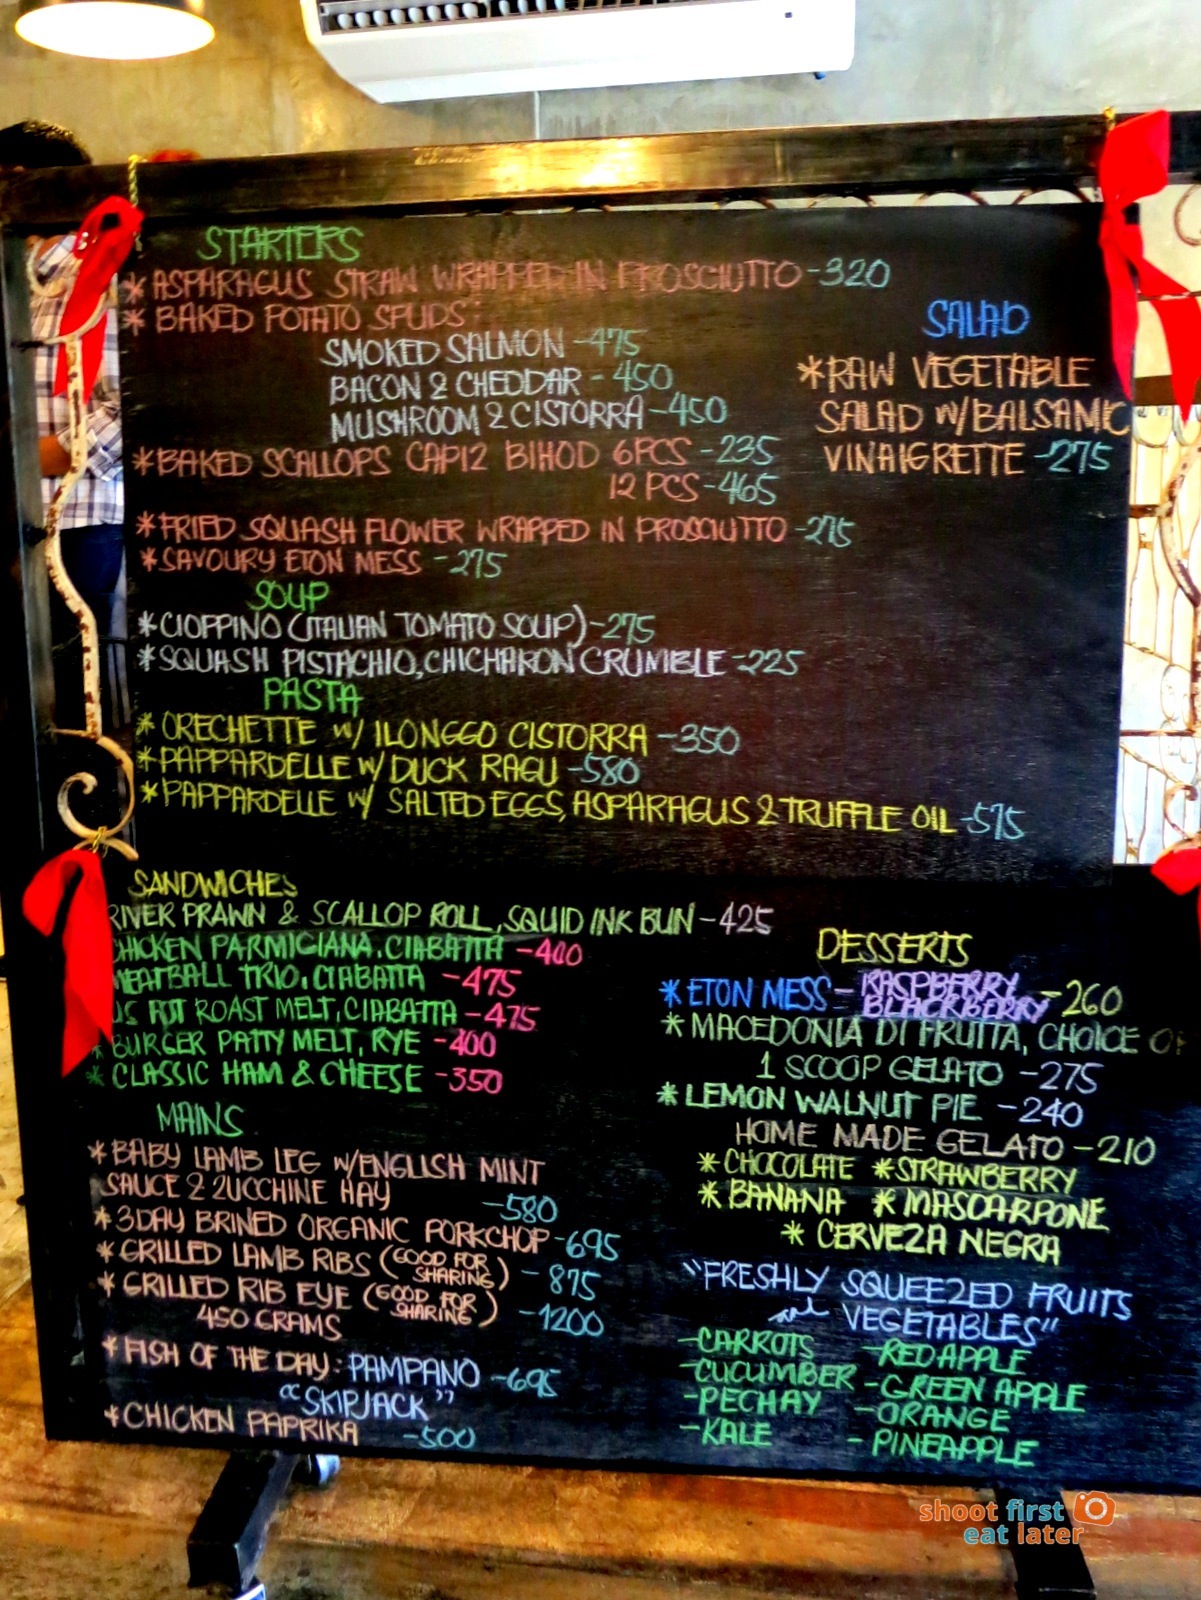 STARTERS
*ASPARAGUS STRAW WRAPPED IN PROSCIUTTO -320
* BAKED POTATO SPUDS:
SMOKED SALMON -475
BACON & CHEDDAR -450
MUSHROOM & CISTORRA -450
*BAKED SCALLOPS CAPIZ BIHOD 6PCS -235
12 PCS -465
*FRIED SQUASH FLOWER WRAPPED IN PROSCIUTTO -275
*SAVOURY ETON MESS -275
SALAD
*RAW VEGETABLE
SALAD W/BALSAMIC
VINAIGRETTE -275
SOUP
*CIOPPINO (ITALIAN TOMATO SOUP) -275
*SQUASH PISTACHIO, CHICHARON CRUMBLE -225
PASTA
* ORECHETTE W/ ILONGGO CISTORRA -350
*PAPPARDELLE W/ DUCK RAGU -580
*PAPPARDELLE W/ SALTED EGGS, ASPARAGUS & TRUFFLE OIL -575
SANDWICHES
RIVER PRAWN & SCALLOP ROLL, SQUID INK BUN -425
CHICKEN PARMIGIANA, CIABATTA -400
MEATBALL TRIO, CIABATTA -475
US POT ROAST MELT, CIABATTA -475
* BURGER PATTY MELT, RYE -400
* CLASSIC HAM & CHEESE -350
MAINS
*BABY LAMB LEG W/ENGLISH MINT
SAUCE & ZUCCHINE HAY -580
*3DAY BRINED ORGANIC PORKCHOP -695
*GRILLED LAMB RIBS (GOOD FOR SHARING) -875
* GRILLED RIB EYE (GOOD FOR SHARING) -1200
450 GRAMS
*FISH OF THE DAY: PAMPANO -695
"SKIPJACK"
*CHICKEN PAPRIKA -500
DESSERTS
*ETON MESS - RASPBERRY -260
BLACKBERRY
*MACEDONIA DI FRUTTA, CHOICE OF
1 SCOOP GELATO -275
*LEMON WALNUT PIE -240
HOME MADE GELATO -210
*CHOCOLATE *STRAWBERRY
*BANANA *MASCARPONE
* CERVEZA NEGRA
"FRESHLY SQUEEZED FRUITS
and VEGETABLES"
-CARROTS -RED APPLE
-CUCUMBER -GREEN APPLE
-PECHAY -ORANGE
-KALE -PINEAPPLE
shoot first
eat later